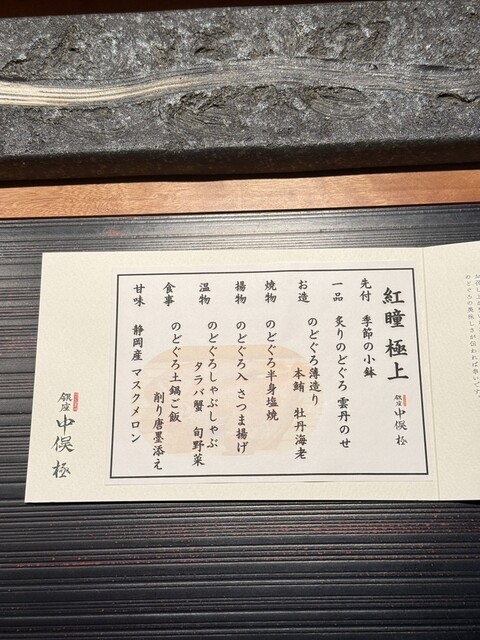 紅瞳 極上
銀座 中俣 極
先付 季節の小鉢
一品 炙りのどぐろ 雲丹のせ
お造 のどぐろ薄造り
本鮪 牡丹海老
焼物 のどぐろ半身塩焼
揚物 のどぐろ入 さつま揚げ
温物 のどぐろしゃぶしゃぶ
タラバ蟹 旬野菜
食事 のどぐろ土鍋ご飯
削り唐墨添え
甘味 静岡産 マスクメロン
銀座 中俣 極
のどぐろの美味しさが伝われば幸いです。